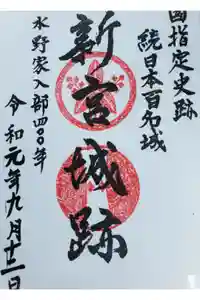 國指定史跡
続日本百名城
新宮城跡
水野家入部四〇〇年
令和元年九月十二日